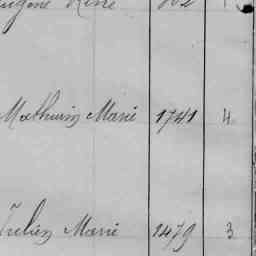 Eugène René
Mathurin Marie 1741 4
Julien Marie 1479 3